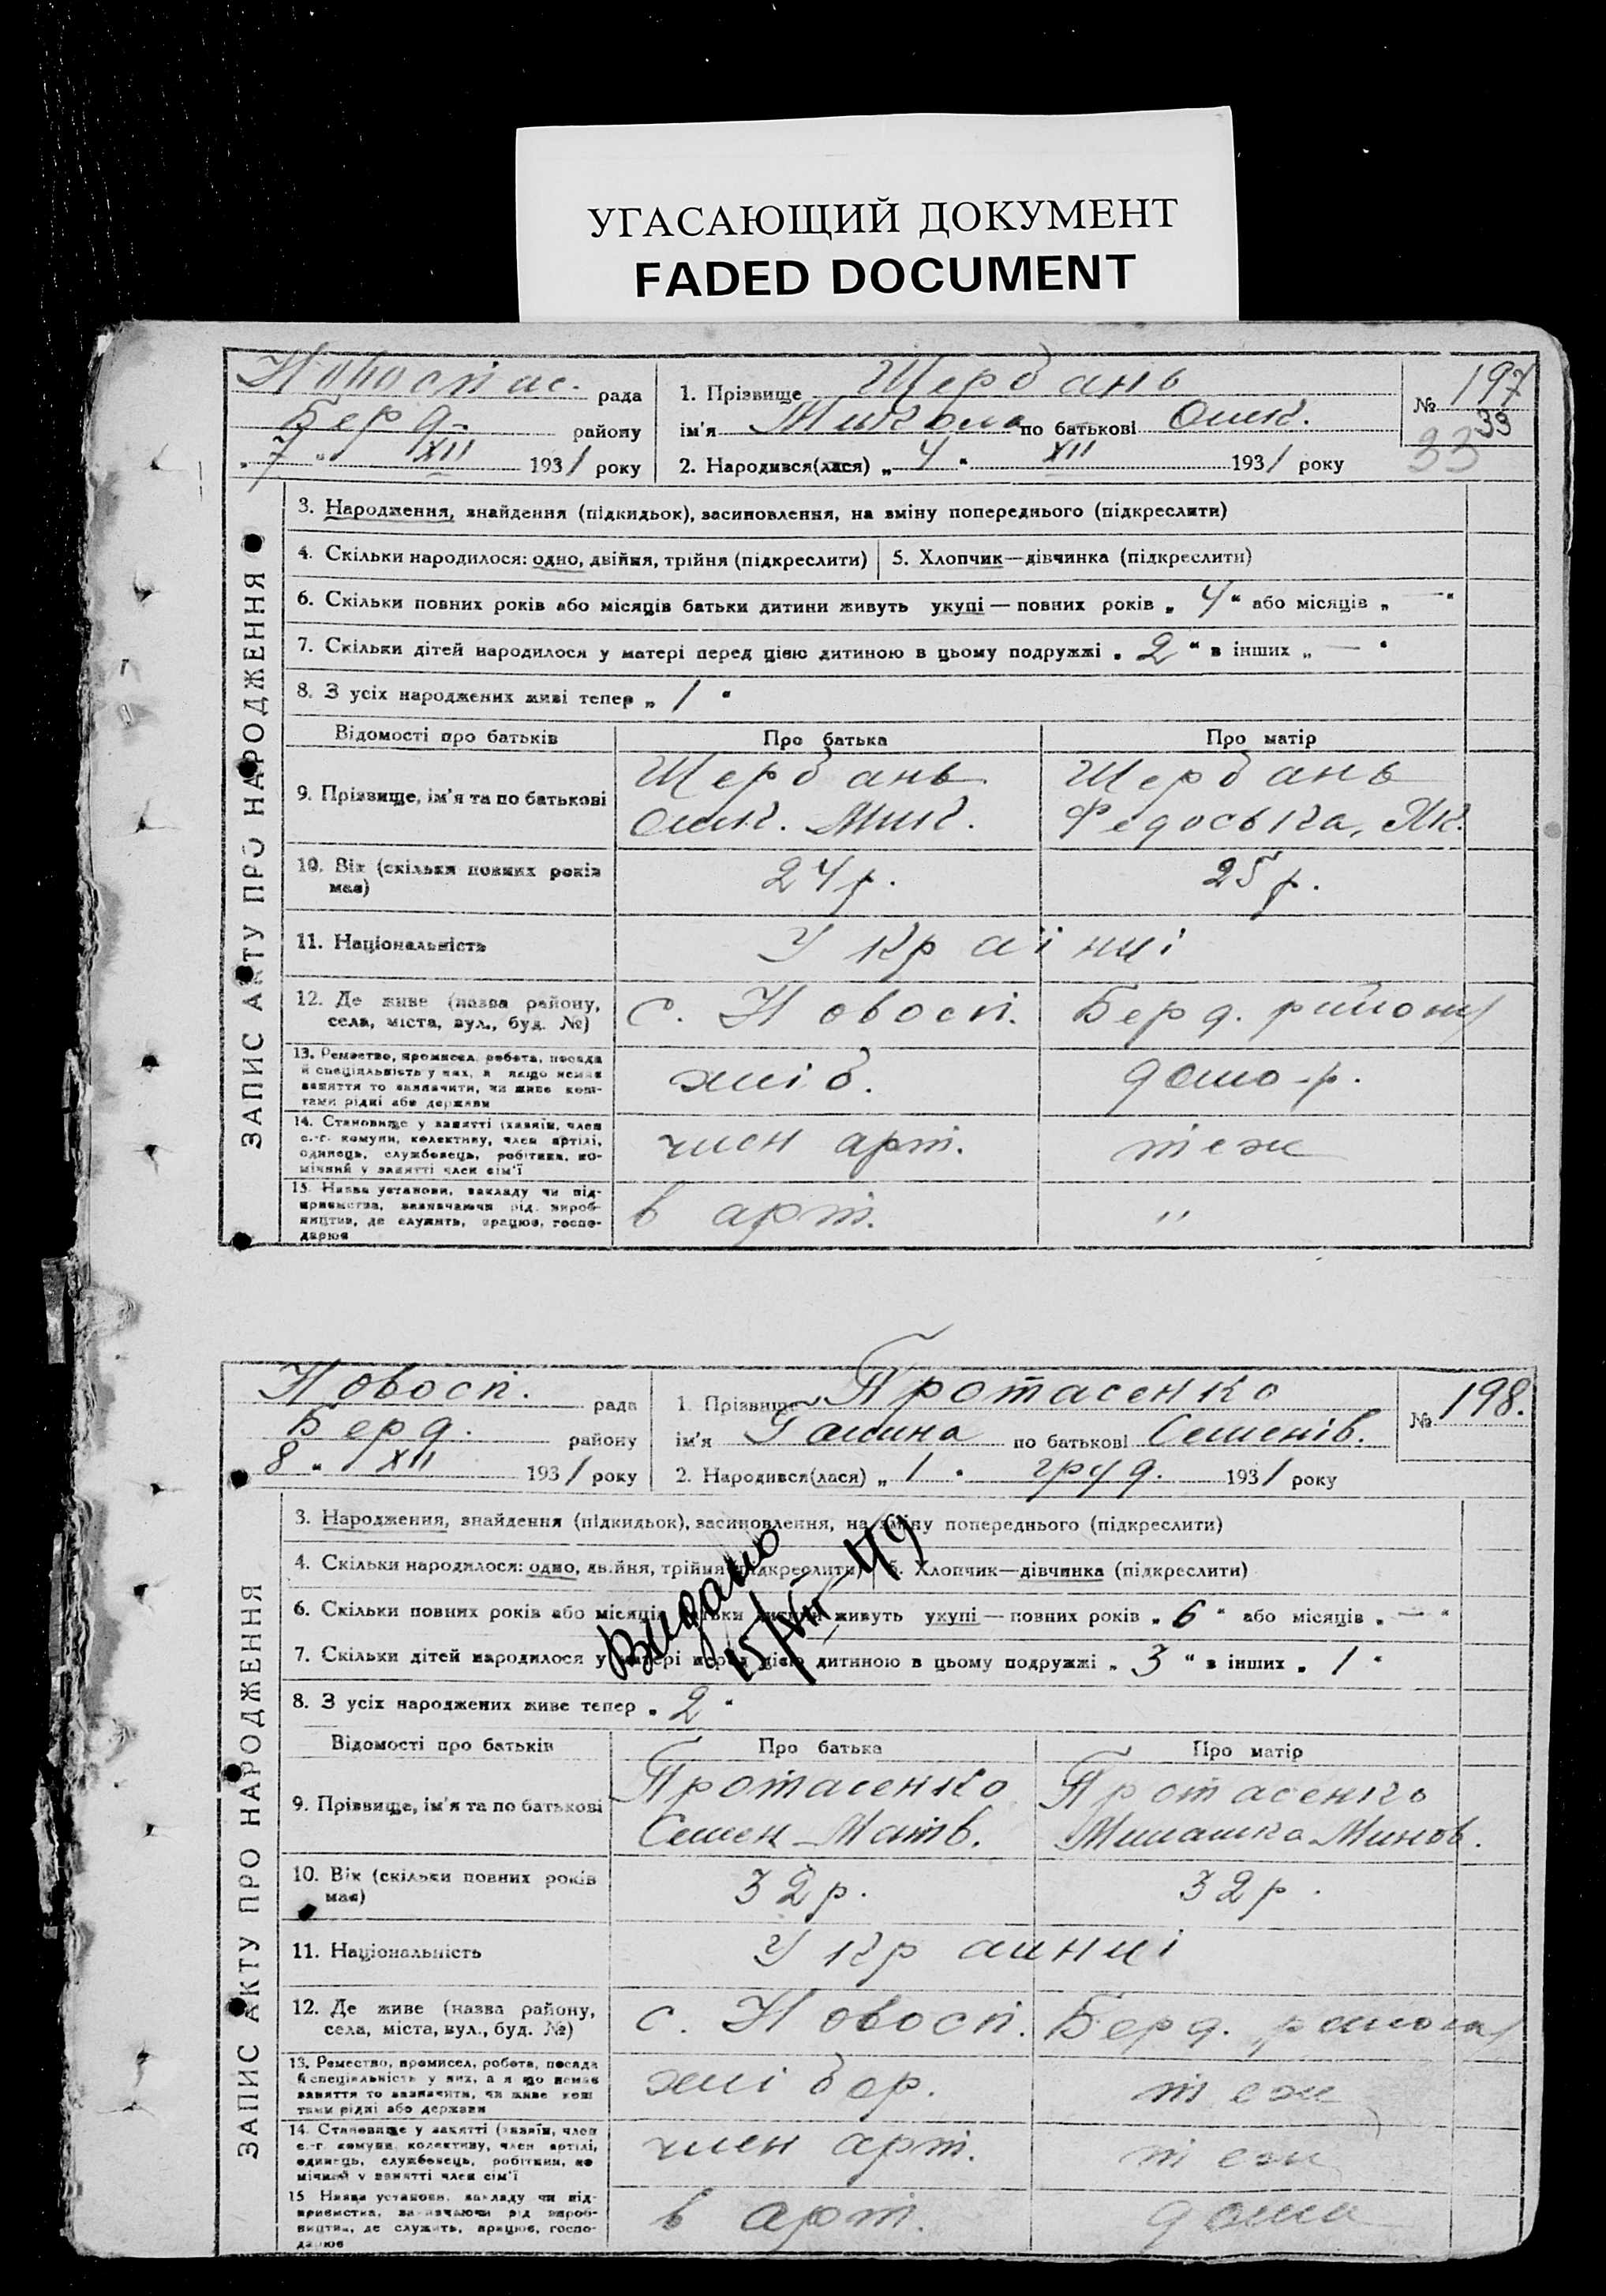 УГАСАЮЩИЙ ДОКУМЕНТ
FADED DOCUMENT
Новоспас. рада
Берд. району
„7“ XII 1931 року
1. Прізвище Щербань
ім'я Микола по батькові Олек.
2. Народився(лася) „4“ XII 1931 року
№ 197
39
33
ЗАПИС АКТУ ПРО НАРОДЖЕННЯ
3. Народження, знайдення (підкидьок), засиновлення, на зміну попереднього (підкреслити)
4. Скільки народилося: одно, двійня, трійня (підкреслити) 5. Хлопчик—дівчинка (підкреслити)
6. Скільки повних років або місяців батьки дитини живуть укупі — повних років „4“ або місяців „—“
7. Скільки дітей народилося у матері перед цією дитиною в цьому подружжі „2“ в інших „—“
8. З усіх народжених живі тепер „1“
Відомості про батьків Про батька Про матір
9. Прізвище, ім'я та по батькові
Щербань Щербань
Олек. Мик. Федоська, Як.
10. Вік (скільки повних років
має)
24 р. 25 р.
11. Національність Українці
12. Де живе (назва району,
села, міста, вул., буд. №)
с. Новосп. Берд. району
13. Ремество, промисел, робота, посада
й спеціяльність у них, а якщо немає
заняття то зазначити, чи живе кош-
тами рідні або держави
хліб. дом-р.
14. Становище у занятті (хазяїн, член
с.-г. комуни, колективу, член артілі,
одинець, службовець, робітник, по-
мічний у занятті член сім'ї
член арт. теж
15. Назва установи, закладу чи під-
приємства, зазначаючи рід вироб-
ництва, де служить, працює, госпо-
дарює
в арт. „
Новосп. рада
Берд. району
8 „ XII 1931 року
1. Прізвище Протасенко
ім'я Галина по батькові Семенів.
2. Народився(лася) „1“ груд. 1931 року
№ 198.
ЗАПИС АКТУ ПРО НАРОДЖЕННЯ
3. Народження, знайдення (підкидьок), засиновлення, на зміну попереднього (підкреслити)
4. Скільки народилося: одно, двійня, трійня (підкреслити) 5. Хлопчик—дівчинка (підкреслити)
6. Скільки повних років або місяців батьки дитини живуть укупі — повних років „6“ або місяців „—“
7. Скільки дітей народилося у матері перед цією дитиною в цьому подружжі „3“ в інших „1“
8. З усіх народжених живе тепер „2“
Видано
15/VII-49
Відомості про батьків Про батька Про матір
9. Прізвище, ім'я та по батькові
Протасенко Протасенко
Семен Матв. Милашка Минов.
10. Вік (скільки повних років
має)
32 р. 32 р.
11. Національність Украинці
12. Де живе (назва району,
села, міста, вул., буд. №)
с. Новосп. Берд. району
13. Ремество, промисел, робота, посада
й спеціяльність у них, а якщо немає
заняття то зазначити, чи живе кош
тами рідні або держави
хлібор. теж
14. Становище у занятті (хазяїн, член
с.-г. комуни, колективу, член артілі,
одинець, службовець, робітник, по
мічний у занятті член сім'ї
член арт. теж
15 Назва установи, закладу чи під-
приємства, зазначаючи рід вироб-
ництва, де служить, працює, госпо-
дарює
в арт. дома